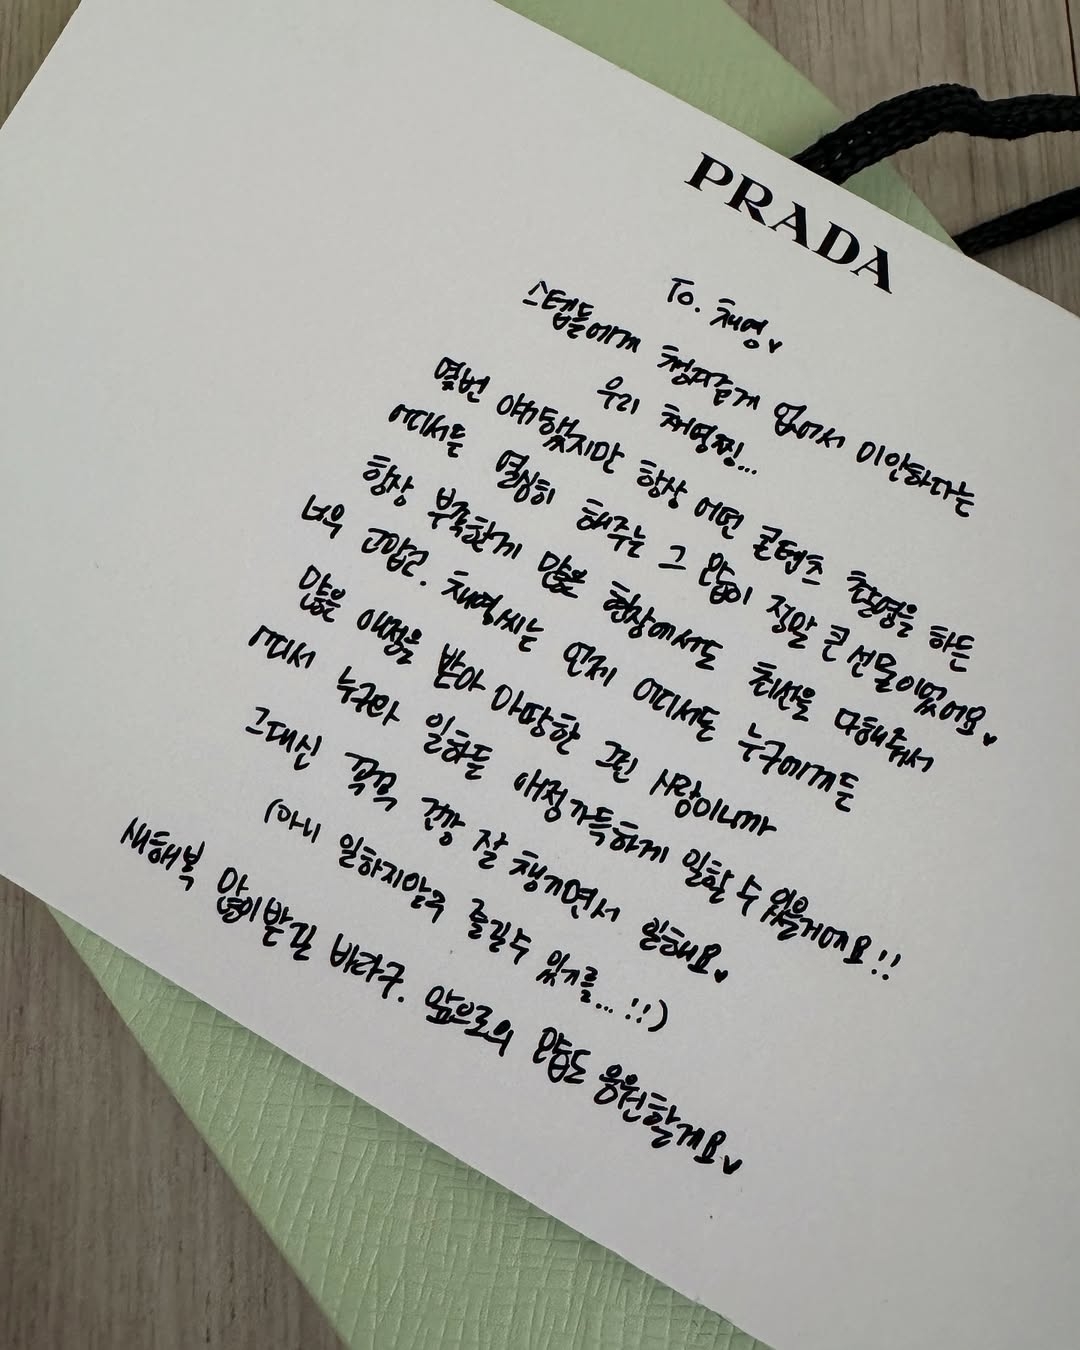 PRADA
To. 채영♥
스텝들에게 챙겨줄게 없어서 미안하다는
우리 채영찡...
몇번 얘기했지만 항상 어떤 콘텐츠 촬영을 하든
어디서든 열심히 해주는 그 맘이 정말 큰 선물이었어요♥
항상 부족한게 많은 현장에서도 최선을 다해줘서
너무 고맙고. 채영씨는 언제 어디서든 누구에게든
많은 애정을 받아 마땅한 그런 사람이니까
어디서 누구와 일하든 애정가득하게 일할 수 있을거에요!!
그대신 꼭꼭 건강 잘 챙기면서 일해요♥
(아니 일하지말구 즐길수 있기를...!!)
새해복 많이받길 바라구. 앞으로의 맘도 응원할게요♥